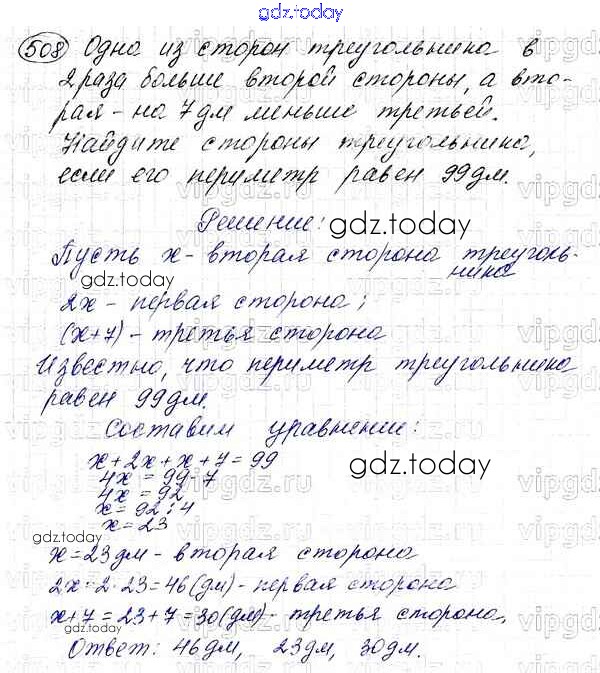 gdz.today
508 Одна из сторон треугольника в
2 раза больше второй стороны, а вто-
рая - на 7 дм меньше третьей.
Найдите стороны треугольника,
если его периметр равен 99 дм.
Решение:
gdz.today
Пусть x - вторая сторона треуголь-
ника
gdz.today
2x - первая сторона;
(x+7) - третья сторона
Известно, что периметр треугольника
равен 99 дм.
Составим уравнение:
x + 2x + x + 7 = 99
4x = 99 - 7
gdz.today
4x = 92
x = 92 : 4
x = 23
gdz.today
x = 23 дм - вторая сторона
2x = 2 · 23 = 46 (дм) - первая сторона
x + 7 = 23 + 7 = 30 (дм) - третья сторона.
gdz.today
Ответ: 46 дм, 23 дм, 30 дм.